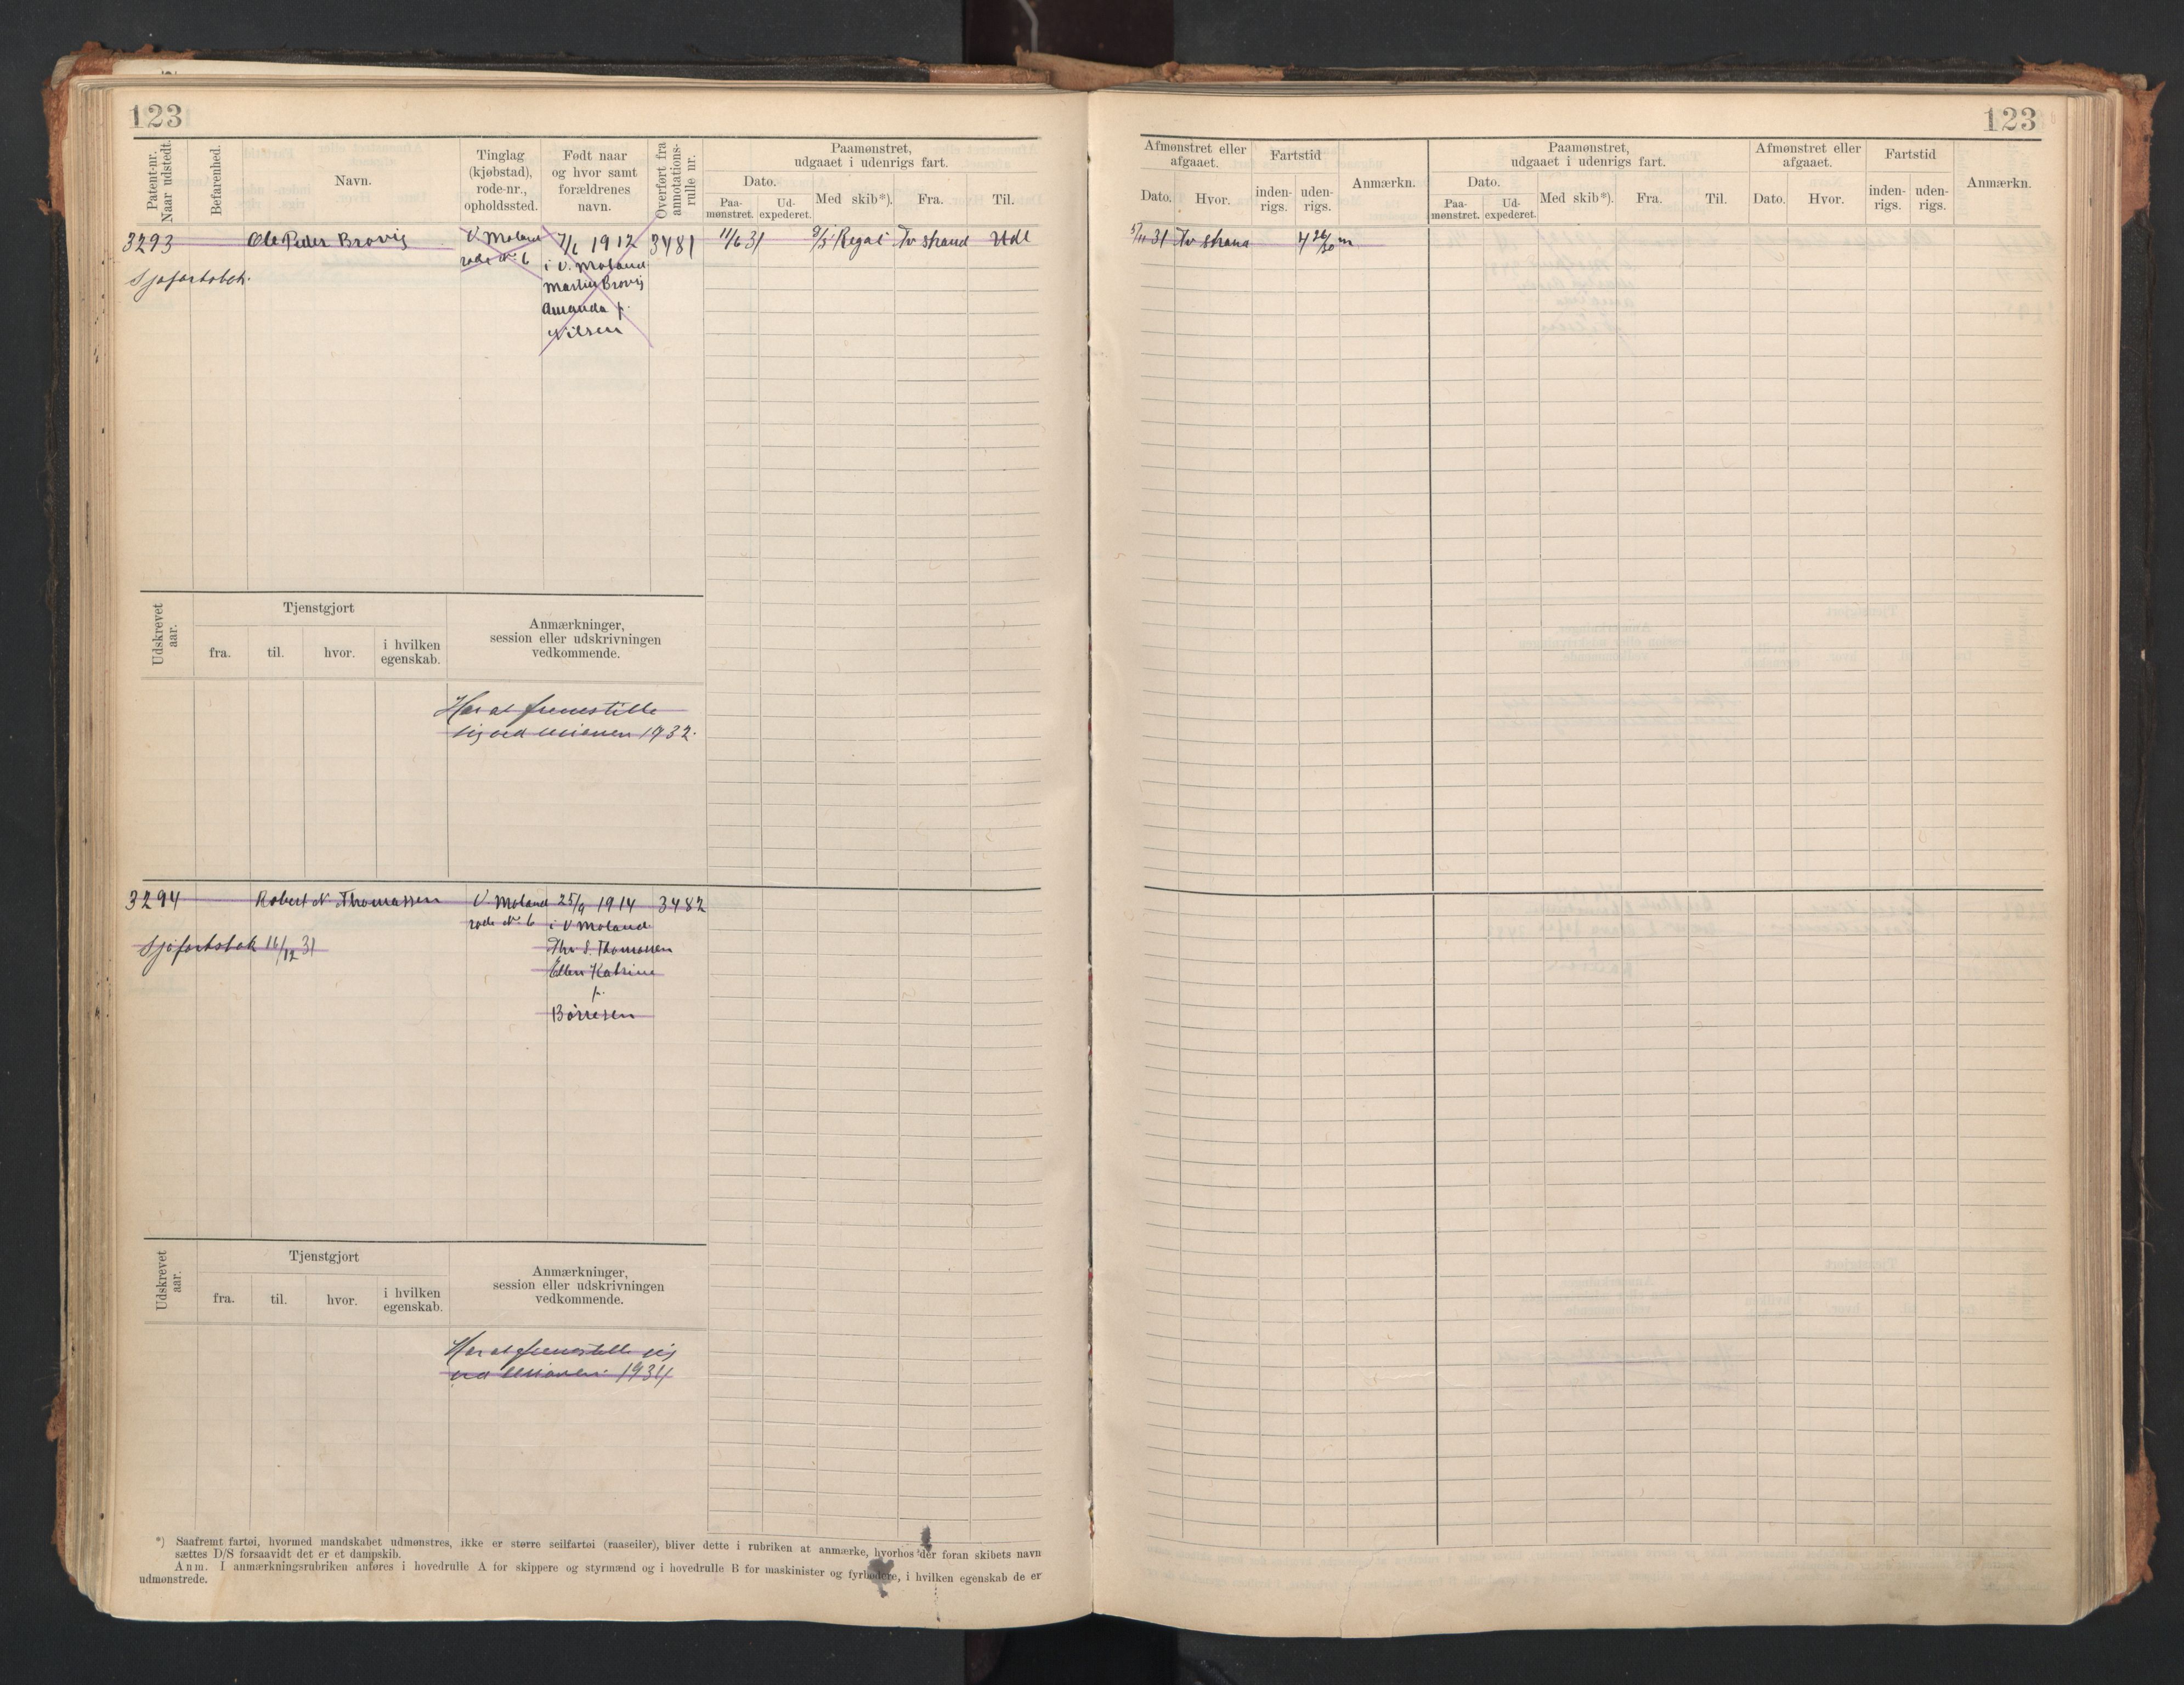 123
123
Patent-nr.
Naar udstedt.
Befarenhed.
Navn.
Tinglag
(kjøbstad),
rode-nr.,
opholdssted.
Født naar
og hvor samt
forældrenes
navn.
Overført fra
annotations-
rulle nr.
Paamønstret,
udgaaet i udenrigs fart.
Dato.
Paa-
mønstret.
Ud-
expederet.
Med skib*).
Fra.
Til.
Afmønstret eller
afgaaet.
Dato.
Hvor.
Fartstid
inden-
rigs.
uden-
rigs.
Anmærkn.
Paamønstret,
udgaaet i udenrigs fart.
Dato.
Paa-
mønstret.
Ud-
expederet.
Med skib*).
Fra.
Til.
Afmønstret eller
afgaaet.
Dato.
Hvor.
Fartstid
inden-
rigs.
uden-
rigs.
Anmærkn.
3293 Ole Peder Brovig V. Moland 7/1 1912 3481 11/6 31 D/S Regal Tvstrand Udl 5/11 31 Tvstrand 4 26/30 m
rode No. 6 i V. Moland
Sjøfartsbok. Martin Brovig
Amanda f.
Nilsen
Udskrevet
aar.
Tjenstgjort
fra.
til.
hvor.
i hvilken
egenskab.
Anmærkninger,
session eller udskrivningen
vedkommende.
Har at fremstille
sig ved sesionen 1932.
3294 Robert N. Thomassen V. Moland 25/9 1914 3482
rode No. 6 i V Moland
Sjøfartsbok 16/12 31 Thv. S. Thomassen
Ellen Katrine
f.
Børresen
Udskrevet
aar.
Tjenstgjort
fra.
til.
hvor.
i hvilken
egenskab.
Anmærkninger,
session eller udskrivningen
vedkommende.
Har at fremstille sig
ved sesionen 1934
*) Saafremt fartøi, hvormed mandskabet udmønstres, ikke er større seilfartøi (raaseiler), bliver dette i rubriken at anmærke, hvorhos der foran skibets navn
sættes D/S forsaavidt det er et dampskib.
Anm. I anmærkningsrubriken anføres i hovedrulle A for skippere og styrmænd og i hovedrulle B for maskinister og fyrbødere, i hvilken egenskab de er
udmønstrede.